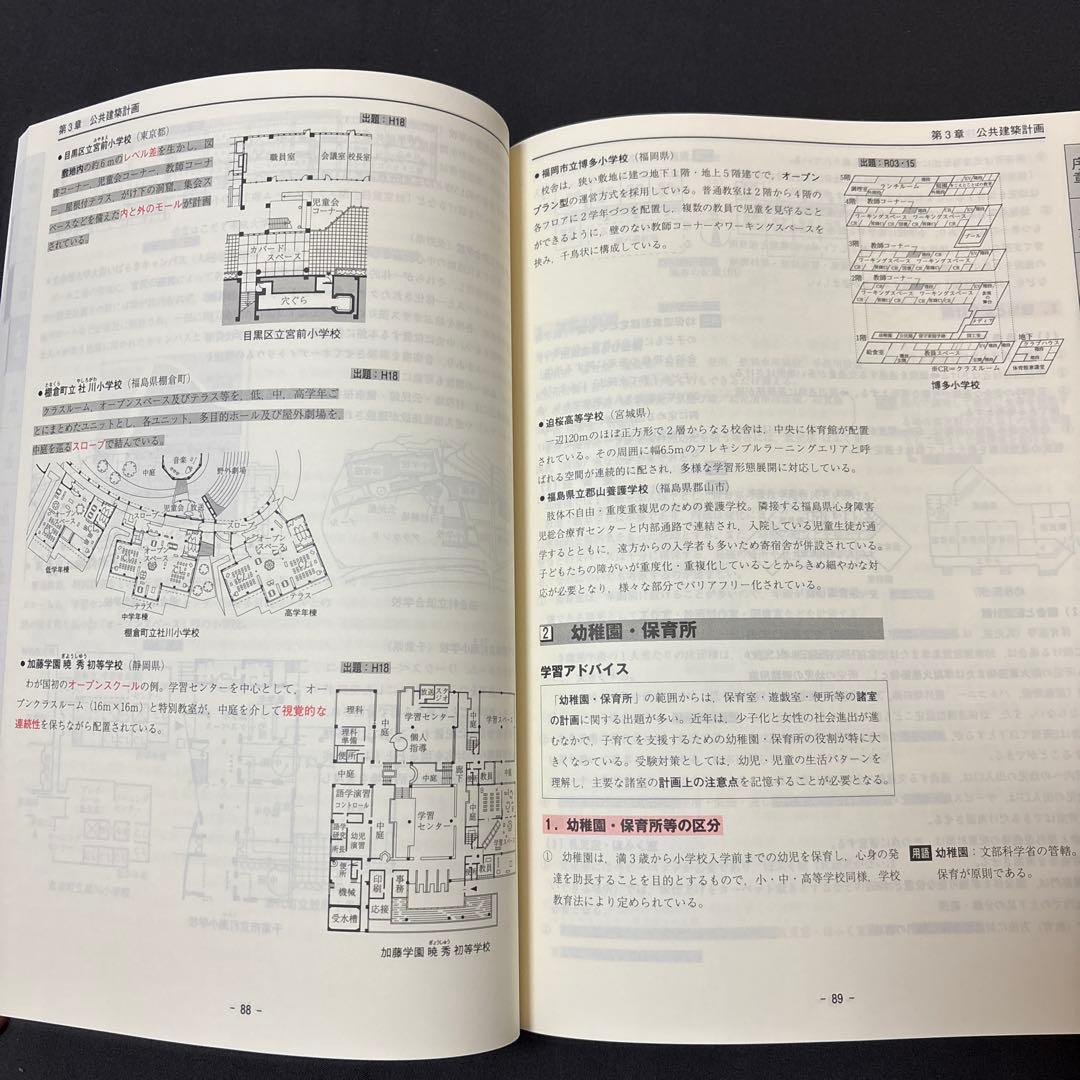 第3章 公共建築計画
出題：H18
みやまえ
●目黒区立宮前小学校（東京都）
敷地内の約6mのレベル差を生かし，図
書コーナー，児童会コーナー，教師コーナ
ー，屋根付テラス，がけ下の洞窟，集会ス
ペースなどを備えた内と外のモールが計画
されている。
職員室
会議室
校長室
児童会
コーナー
カバード
スペース
穴ぐら
目黒区立宮前小学校
出題：H18
たなくら やしろがわ
●棚倉町立社川小学校（福島県棚倉町）
クラスルーム，オープンスペース及びテラス等を，低，中，高学年ご
とにまとめたユニットとし，各ユニット，多目的ホール及び屋外劇場を，
中庭を巡るスロープで結んでいる。
音楽
中庭
野外劇場
児童会
放送
スロープ
スロープ
オープン
スペース
オープン
スペース
低学年棟
テラス
中学年棟
テラス
高学年棟
棚倉町立社川小学校
出題：H18
ぎょうしゅう
●加藤学園暁秀初等学校（静岡県）
わが国初のオープンスクールの例。学習センターを中心として，オー
プンクラスルーム（16m×16m）と特別教室が，中庭を介して視覚的な
連続性を保ちながら配置されている。
放送
スタジオ
理科
中庭
学習センター
中庭
学習スペース
理科
準備
個人
指導
便所
中庭
中庭
廊下
教員
中庭
語学演習
コントロール
中庭
学習
センター
中庭
語学
研究
幼児
演習
所長
便所
機械
印刷
事務
教員
受水槽
応接
ぎょうしゅう
加藤学園暁秀初等学校
- 88 -
第3章 公共建築計画
出題：R03・15
●福岡市立博多小学校（福岡県）
校舎は，狭い敷地に建つ地下1階・地上5階建てで，オープン
プラン型の運営方式を採用している。普通教室は2階から4階の
各フロアに2学年づつを配置し，複数の教員で児童を見守ること
ができるように，壁のない教師コーナーやワーキングスペースを
挟み，千鳥状に構成している。
5階
調理室
ランチルーム
4階
教師コーナー
ワーキングスペース ワーキングスペース
プール
3階
教師コーナー
ワーキングスペース ワーキングスペース
2階
教師コーナー
ワーキングスペース ワーキングスペース
メディア
1階
給食室
教員スペース
地下
クラブハウス
※CR＝クラスルーム
博多小学校
●迫桜高等学校（宮城県）
一辺120mのほぼ正方形で2層からなる校舎は，中央に体育館が配置
されている。その周囲に幅6.5mのフレキシブルラーニングエリアと呼
ばれる空間が連続的に配され，多様な学習形態展開に対応している。
●福島県立郡山養護学校（福島県郡山市）
肢体不自由・重度重複児のための養護学校。隣接する福島県心身障害
児総合療育センターと内部通路で連結され，入院している児童生徒が通
学するとともに，遠方からの入学者も多いため寄宿舎が併設されている。
子どもたちの障がいが重度化・重複化していることからきめ細やかな対
応が必要となり，様々な部分でバリアフリー化されている。
2 幼稚園・保育所
学習アドバイス
「幼稚園・保育所」の範囲からは，保育室・遊戯室・便所等の諸室
の計画に関する出題が多い。近年は，少子化と女性の社会進出が進
むなかで，子育てを支援するための幼稚園・保育所の役割が特に大
きくなっている。受験対策としては，幼児・児童の生活パターンを
理解し，主要な諸室の計画上の注意点を記憶することが必要となる。
1．幼稚園・保育所等の区分
① 幼稚園は，満3歳から小学校入学前までの幼児を保育し，心身の発
達を助長することを目的とするもので，小・中・高等学校同様，学校
教育法により定められている。
用語 幼稚園：文部科学省の管轄。
保育が原則である。
- 89 -